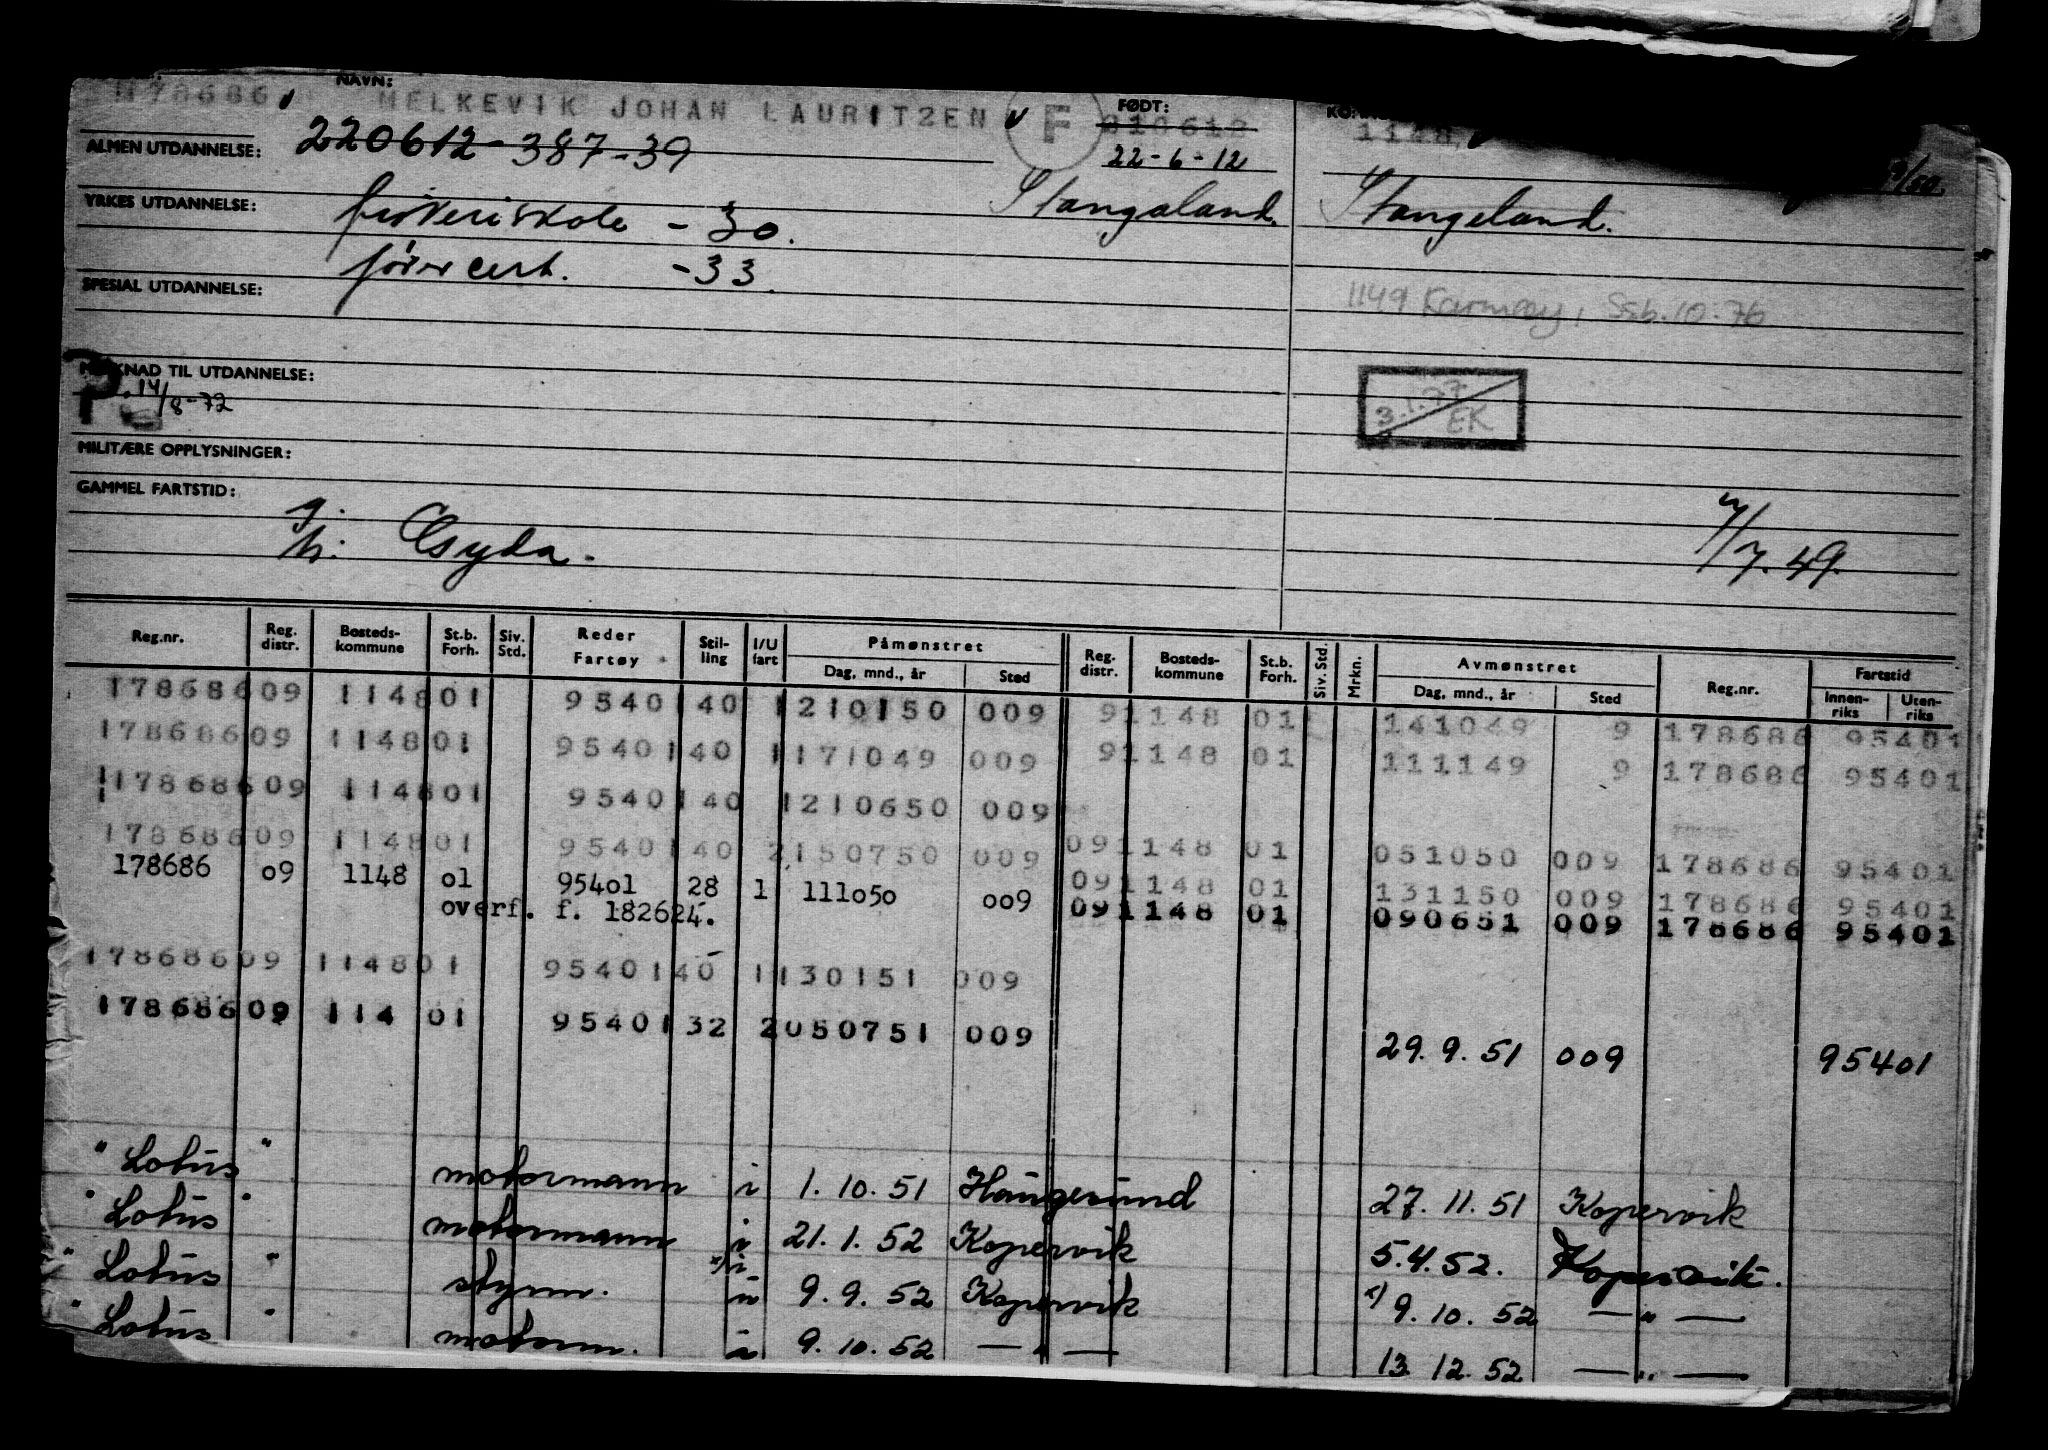 178686 NAVN: MELKEVIK JOHAN LAURITZEN F FØDT: 1148
220612-387-39 22-6-12
ALMEN UTDANNELSE:
Stangaland. Stangeland.
YRKES UTDANNELSE: fiskeriskole -30.
fører cert. -33.
SPESIAL UTDANNELSE:
1149 Karmøy, Ssb. 10.76
MERKNAD TIL UTDANNELSE:
P. 14/8-72
3.1.77 EK
MILITÆRE OPPLYSNINGER:
GAMMEL FARTSTID:
Gyda. 4/7.49.
Reg.nr. Reg. distr. Bosteds-kommune St.b. Forh. Siv. Std. Reder Fartøy Stil-ling I/U fart Påmønstret Dag, mnd., år Sted Reg. distr. Bosteds-kommune St.b. Forh. Siv. Std. Mrkn. Avmønstret Dag, mnd., år Sted Reg.nr. Fartstid Innen-riks Uten-riks
178686 09 1148 01 95401 40 1 210150 009 9 1148 01 141049 9 178686 95401
178686 09 1148 01 95401 40 1 171049 009 9 1148 01 111149 9 178686 95401
178686 09 1148 01 95401 40 1 210650 009
178686 09 1148 01 95401 40 2 150750 009 09 1148 01 051050 009 178686 95401
178686 o9 1148 o1 954o1 28 1 111o5o oo9 09 1148 01 131150 009 178686 95401
overf. f. 182624. 09 1148 01 090651 009 178686 95401
178686 09 1148 01 95401 40 1 130151 009
178686 09 114 01 95401 32 2 050751 009
29.9.51 009 95401
"Lotus" motormann i 1.10.51 Haugesund 27.11.51 Kopervik
"Lotus" motormann i 21.1.52 Kopervik 5.4.52. Kopervik.
"Lotus" styrm. x/i u 9.9.52 Kopervik x/ 9.10.52 — " —
"Lotus" motorm. i 9.10.52 — " — 13.12.52 — " —